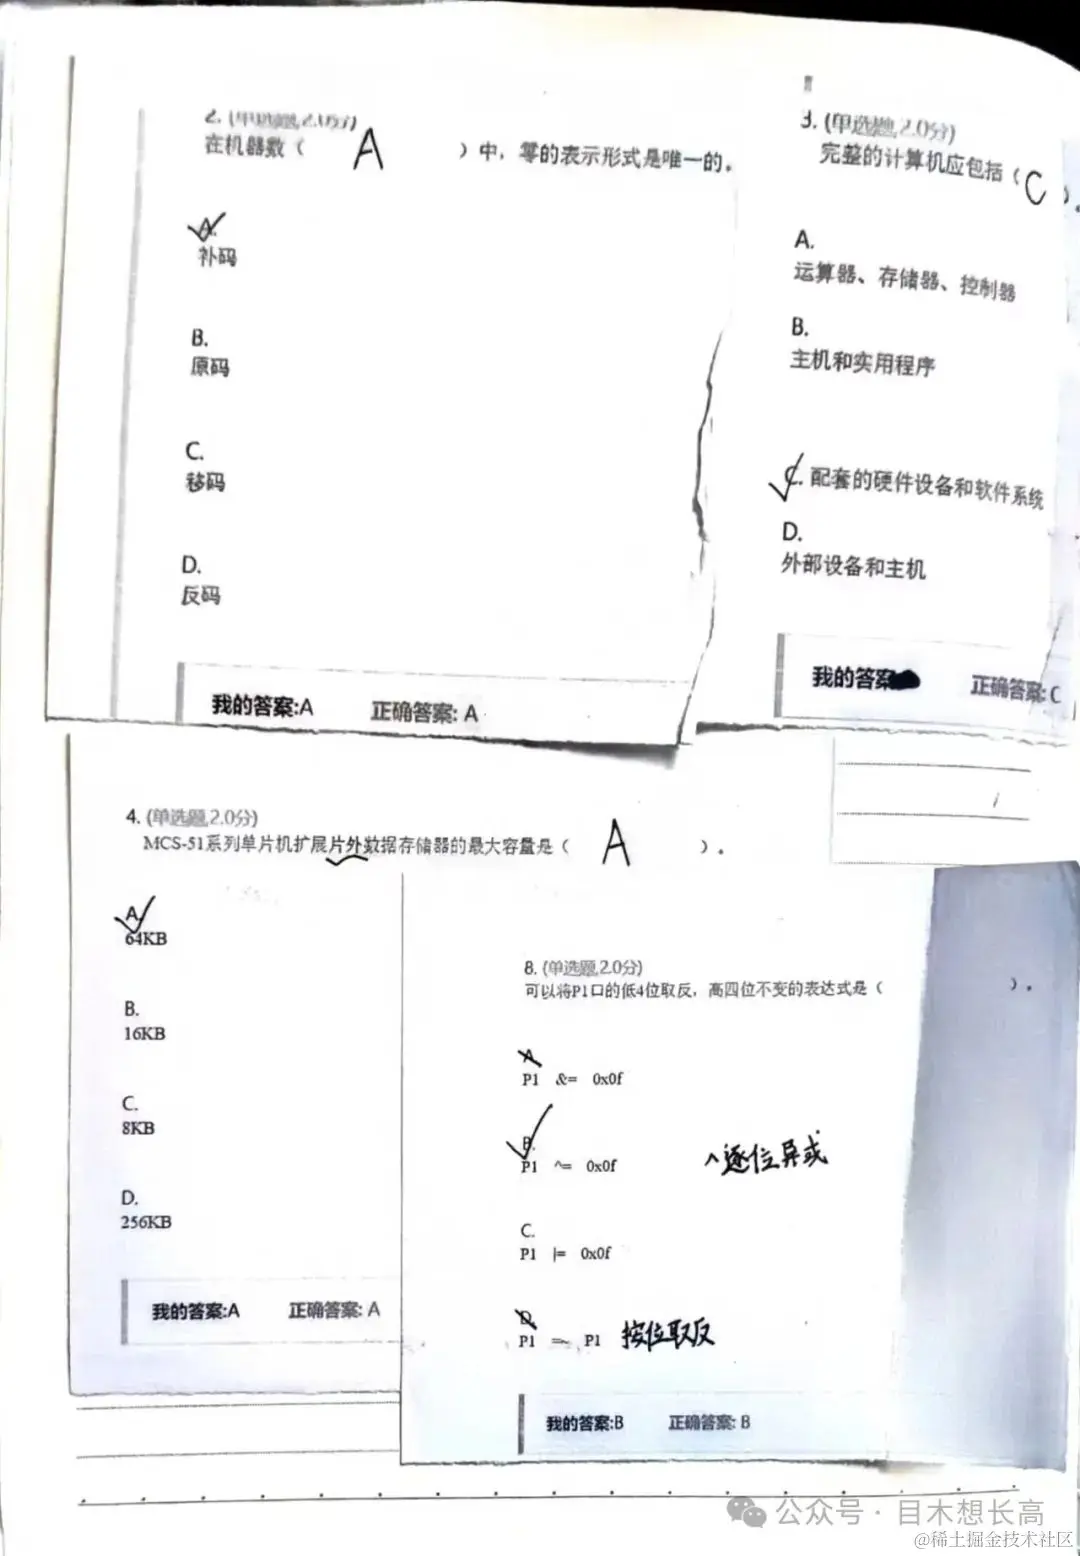 2. (单选题,2.0分)
在机器数（ A ）中，零的表示形式是唯一的。
A.
补码
B.
原码
C.
移码
D.
反码
我的答案:A 正确答案: A
3. (单选题,2.0分)
完整的计算机应包括（ C ）。
A.
运算器、存储器、控制器
B.
主机和实用程序
C. 配套的硬件设备和软件系统
D.
外部设备和主机
我的答案 正确答案: C
4. (单选题,2.0分)
MCS-51系列单片机扩展片外数据存储器的最大容量是（ A ）。
A.
64KB
B.
16KB
C.
8KB
D.
256KB
我的答案:A 正确答案: A
8. (单选题,2.0分)
可以将P1口的低4位取反，高四位不变的表达式是（ ）。
A.
P1 &= 0x0f
B.
P1 ^= 0x0f ^逐位异或
C.
P1 |= 0x0f
D.
P1 =~ P1 按位取反
我的答案:B 正确答案: B
公众号 · 目木想长高
@稀土掘金技术社区